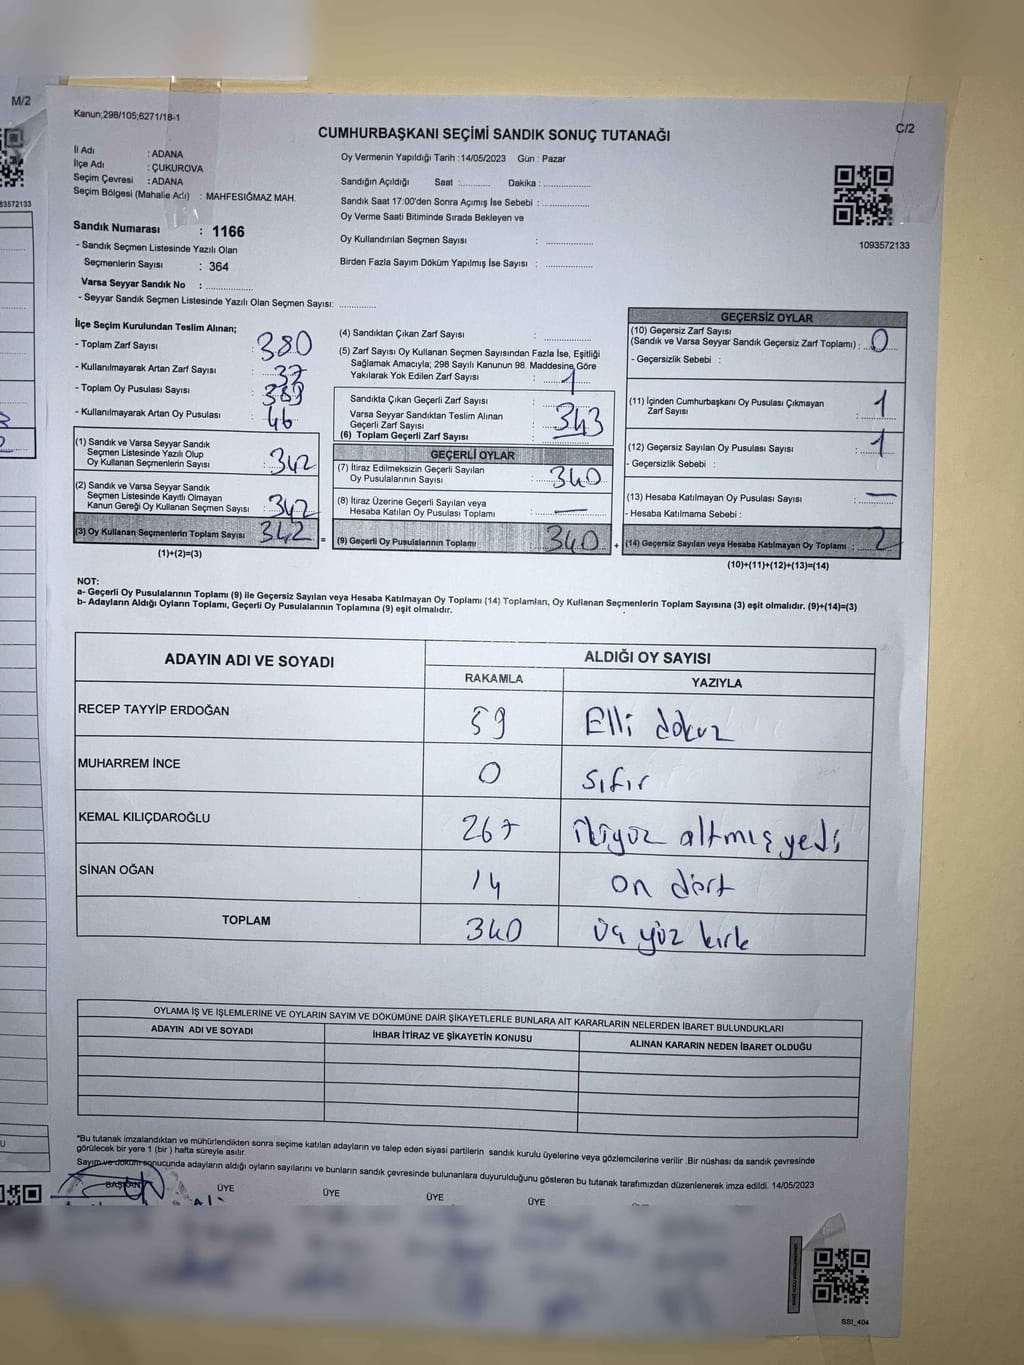 M/2
Kanun;298/105;6271/18-1
C/2
CUMHURBAŞKANI SEÇİMİ SANDIK SONUÇ TUTANAĞI
İl Adı : ADANA
İlçe Adı : ÇUKUROVA
Seçim Çevresi : ADANA
Seçim Bölgesi (Mahalle Adı) : MAHFESIĞMAZ MAH.
Oy Vermenin Yapıldığı Tarih : 14/05/2023 Gün : Pazar
Sandığın Açıldığı Saat :........... Dakika : ..................
Sandık Saat 17:00'den Sonra Açımış İse Sebebi : ..................
Oy Verme Saati Bitiminde Sırada Bekleyen ve
Oy Kullandırılan Seçmen Sayısı : ..................
Birden Fazla Sayım Döküm Yapılmış İse Sayısı : ..................
1093572133
83572133
Sandık Numarası : 1166
- Sandık Seçmen Listesinde Yazılı Olan
Seçmenlerin Sayısı : 364
Varsa Seyyar Sandık No : ..................
- Seyyar Sandık Seçmen Listesinde Yazılı Olan Seçmen Sayısı: ..............
İlçe Seçim Kurulundan Teslim Alınan;
- Toplam Zarf Sayısı : 380
- Kullanılmayarak Artan Zarf Sayısı : 37
- Toplam Oy Pusulası Sayısı :
- Kullanılmayarak Artan Oy Pusulası : 46
(1) Sandık ve Varsa Seyyar Sandık
Seçmen Listesinde Yazılı Olup
Oy Kullanan Seçmenlerin Sayısı : 342
(2) Sandık ve Varsa Seyyar Sandık
Seçmen Listesinde Kayıtlı Olmayan
Kanun Gereği Oy Kullanan Seçmen Sayısı : 342
(3) Oy Kullanan Seçmenlerin Toplam Sayısı 342 =
(1)+(2)=(3)
(4) Sandıktan Çıkan Zarf Sayısı : ..................
(5) Zarf Sayısı Oy Kullanan Seçmen Sayısından Fazla İse, Eşitliği
Sağlamak Amacıyla; 298 Sayılı Kanunun 98. Maddesine Göre
Yakılarak Yok Edilen Zarf Sayısı : 1
Sandıkta Çıkan Geçerli Zarf Sayısı :
Varsa Seyyar Sandıktan Teslim Alınan
Geçerli Zarf Sayısı :
(6) Toplam Geçerli Zarf Sayısı : 343
GEÇERLİ OYLAR
(7) İtiraz Edilmeksizin Geçerli Sayılan
Oy Pusulalarının Sayısı : 340
(8) İtiraz Üzerine Geçerli Sayılan veya
Hesaba Katılan Oy Pusulası Toplamı : —
(9) Geçerli Oy Pusulalarının Toplamı 340 +
GEÇERSİZ OYLAR
(10) Geçersiz Zarf Sayısı
(Sandık ve Varsa Seyyar Sandık Geçersiz Zarf Toplamı) : 0
- Geçersizlik Sebebi :
(11) İçinden Cumhurbaşkanı Oy Pusulası Çıkmayan
Zarf Sayısı : 1
(12) Geçersiz Sayılan Oy Pusulası Sayısı : 1
- Geçersizlik Sebebi :
(13) Hesaba Katılmayan Oy Pusulası Sayısı : —
- Hesaba Katılmama Sebebi :
(14) Geçersiz Sayılan veya Hesaba Katılmayan Oy Toplamı : 2
(10)+(11)+(12)+(13)=(14)
NOT:
a- Geçerli Oy Pusulalarının Toplamı (9) ile Geçersiz Sayılan veya Hesaba Katılmayan Oy Toplamı (14) Toplamları, Oy Kullanan Seçmenlerin Toplam Sayısına (3) eşit olmalıdır. (9)+(14)=(3)
b- Adayların Aldığı Oyların Toplamı, Geçerli Oy Pusulalarının Toplamına (9) eşit olmalıdır.
ADAYIN ADI VE SOYADI ALDIĞI OY SAYISI
RAKAMLA YAZIYLA
RECEP TAYYİP ERDOĞAN 59 Elli dokuz
MUHARREM İNCE 0 Sıfır
KEMAL KILIÇDAROĞLU 267 ikiyüz altmış yedi
SİNAN OĞAN 14 on dört
TOPLAM 340 üç yüz kırk
OYLAMA İŞ VE İŞLEMLERİNE VE OYLARIN SAYIM VE DÖKÜMÜNE DAİR ŞİKAYETLERLE BUNLARA AİT KARARLARIN NELERDEN İBARET BULUNDUKLARI
ADAYIN ADI VE SOYADI İHBAR İTİRAZ VE ŞİKAYETİN KONUSU ALINAN KARARIN NEDEN İBARET OLDUĞU
*Bu tutanak imzalandıktan ve mühürlendikten sonra seçime katılan adayların ve talep eden siyasi partilerin sandık kurulu üyelerine veya gözlemcilerine verilir .Bir nüshası da sandık çevresinde
görülecek bir yere 1 (bir ) hafta süreyle asılır.
Sayım ve döküm sonucunda adayların aldığı oyların sayılarını ve bunların sandık çevresinde bulunanlara duyurulduğunu gösteren bu tutanak tarafımızdan düzenlenerek imza edildi. 14/05/2023
BAŞKAN ÜYE ÜYE ÜYE ÜYE
SSI_404